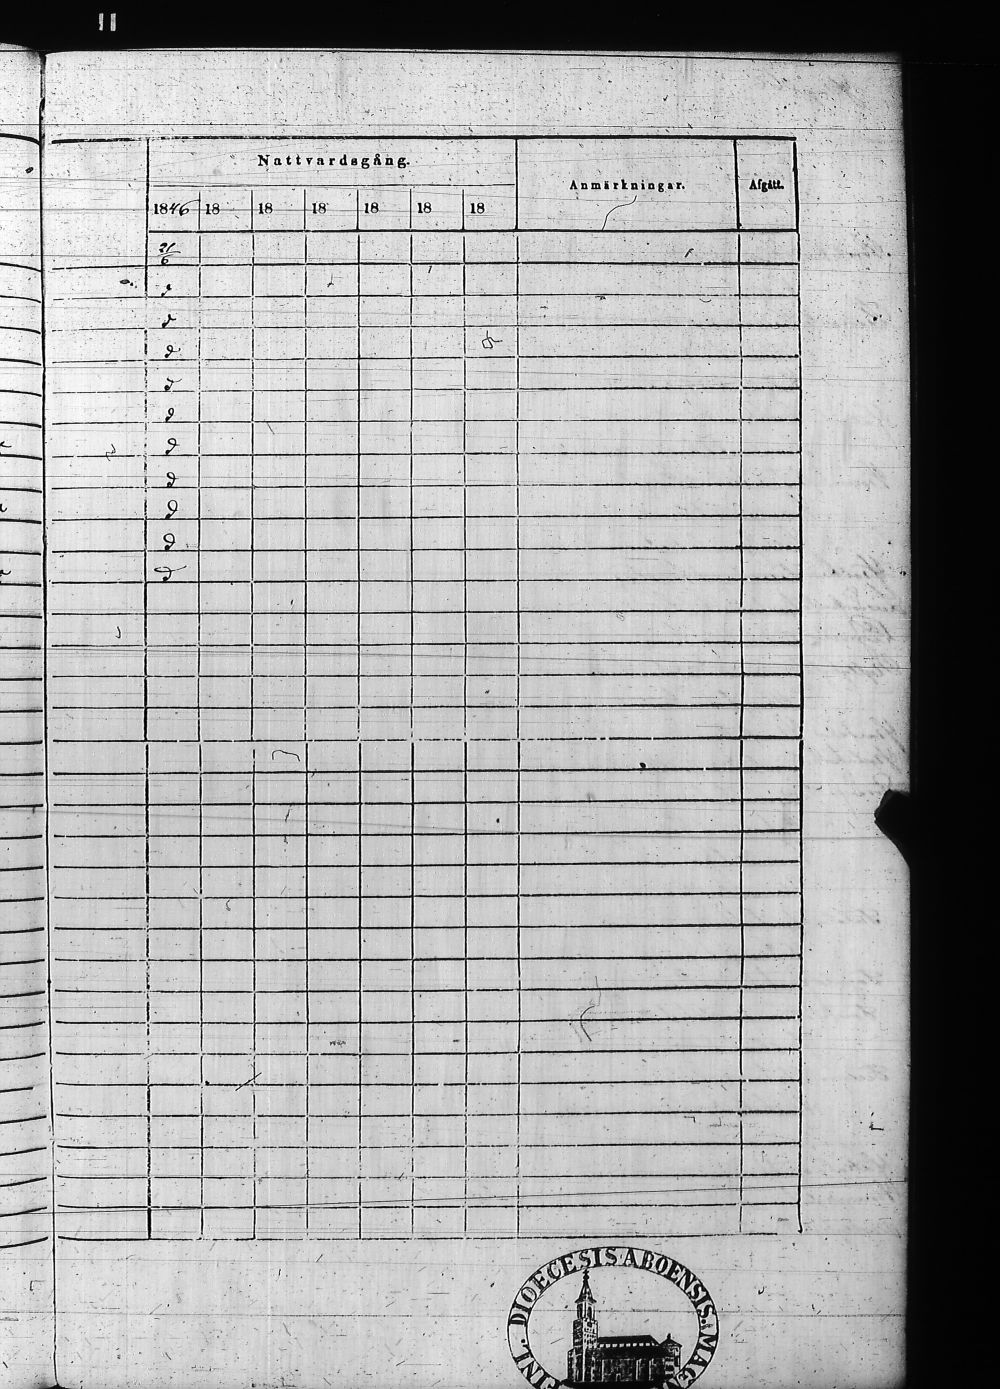 11
Nattvardsgång.
Anmärkningar.
Afgått.
1846 18 18 18 18 18 18
21/6
d
d
d
d
d
d
d
d
d
d
FINL. DIOECESIS ABOENSIS. MAGN